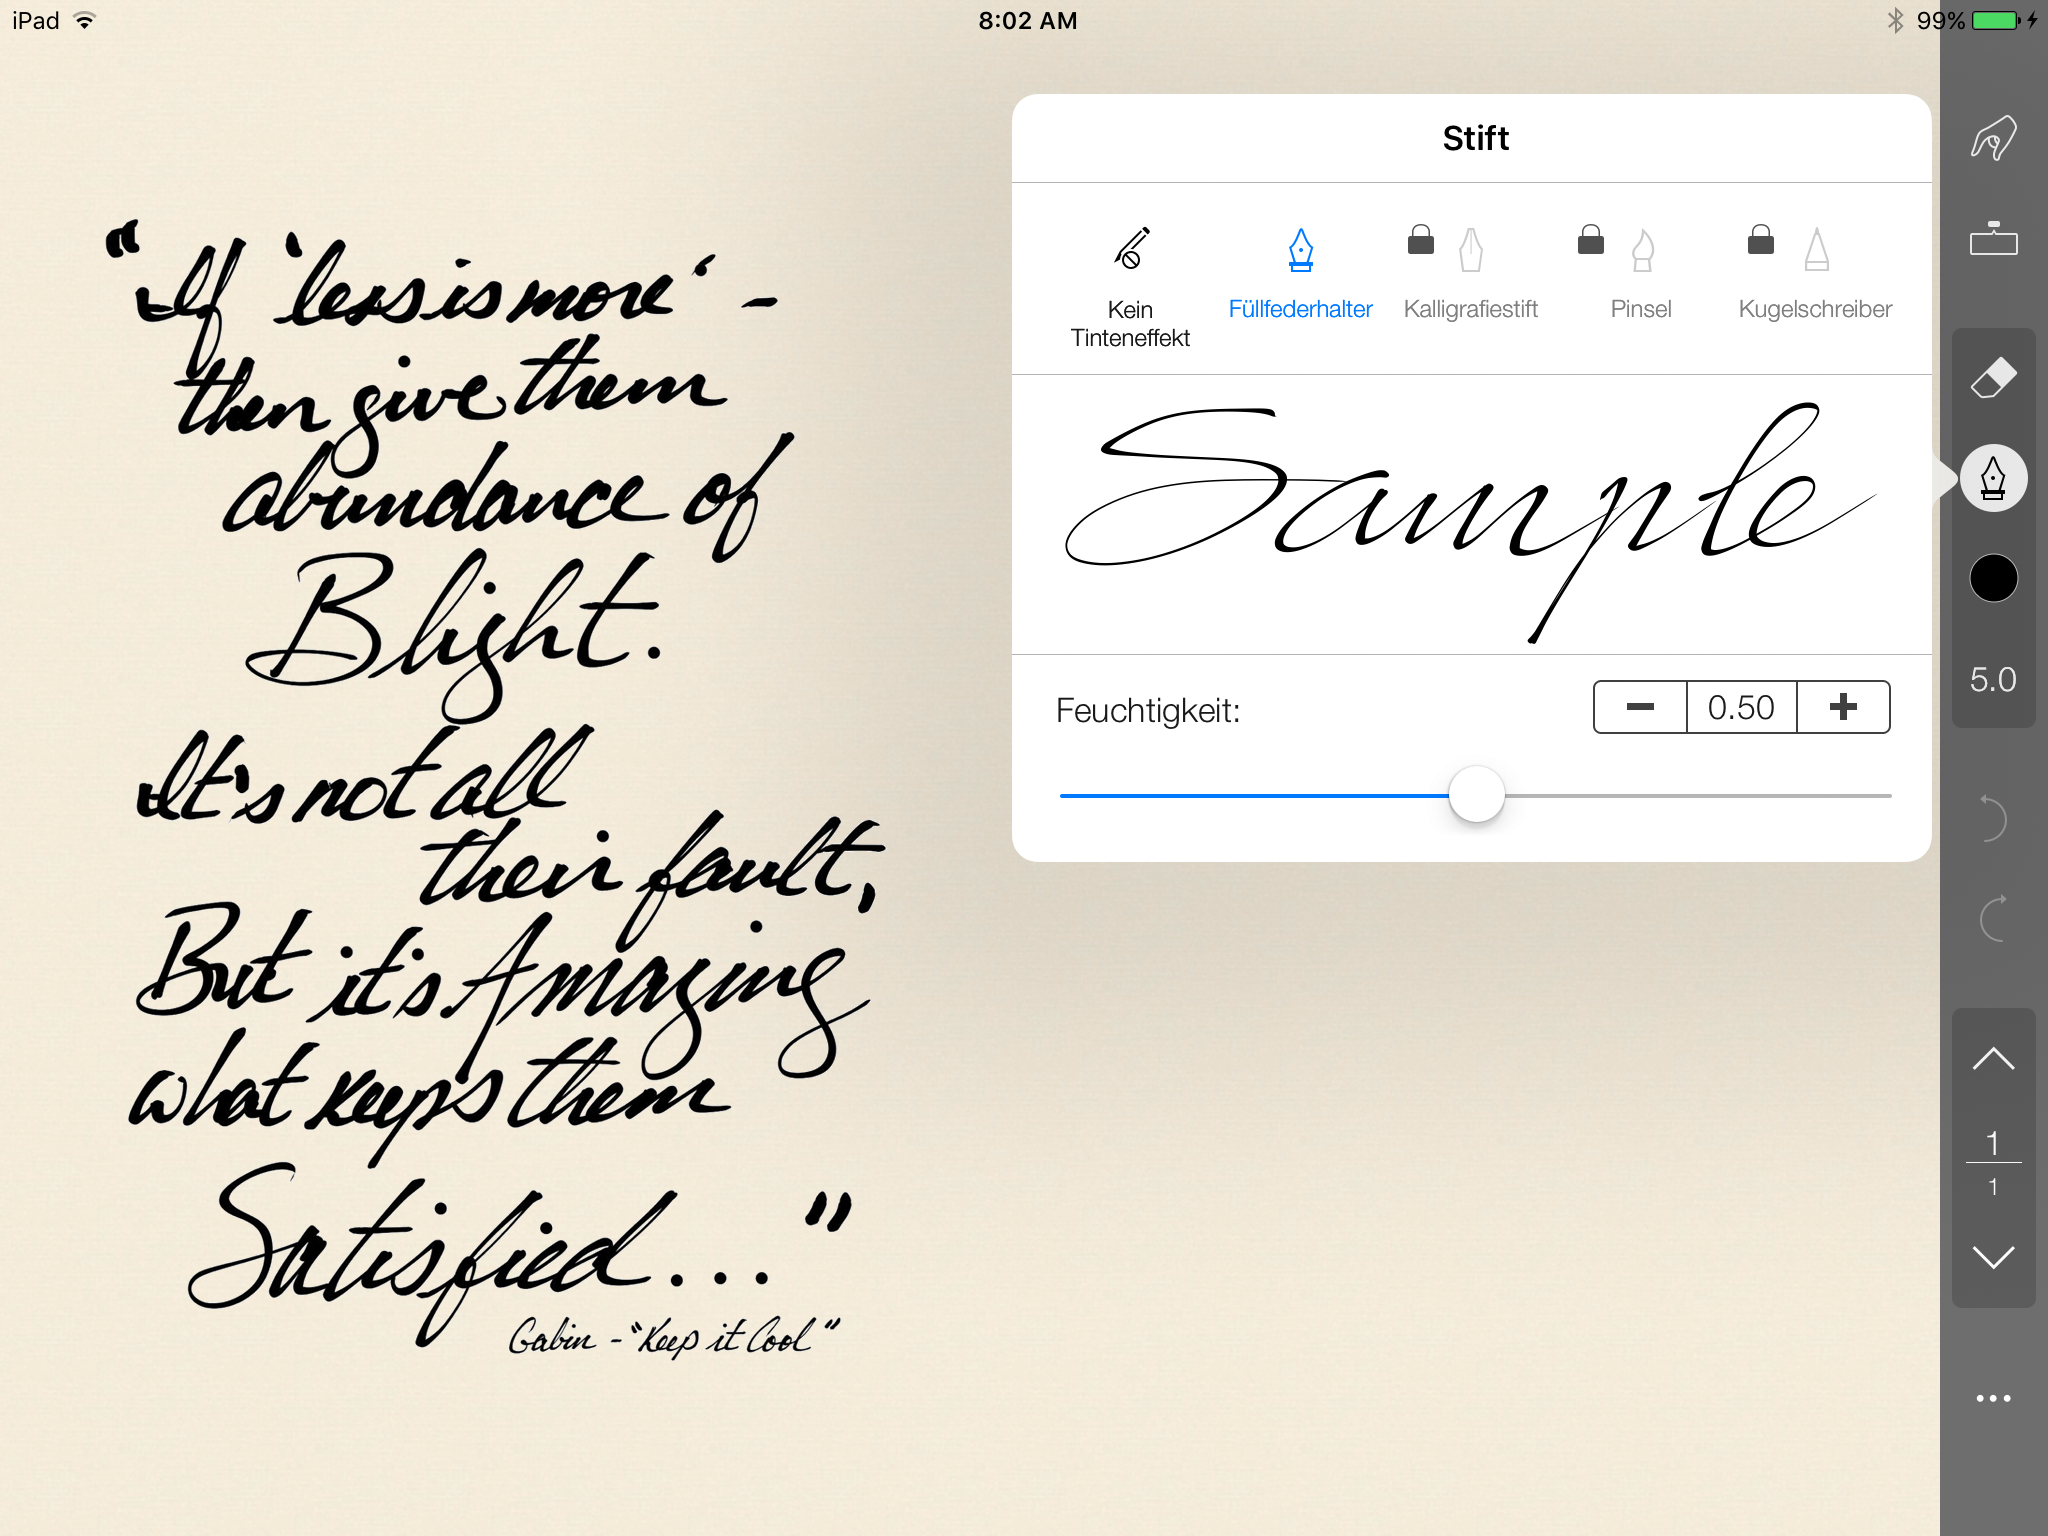 iPad 8:02 AM 99%
“If ‘less is more‘ -
then give them
abundance of
Blight.
It's not all
their fault,
But it's Amazing
what keeps them
Satisfied..."
Gabin - "Keep it Cool"
Stift
Kein Tinteneffekt
Füllfederhalter
Kalligrafiestift
Pinsel
Kugelschreiber
Sample
Feuchtigkeit:
0.50
5.0
1
1